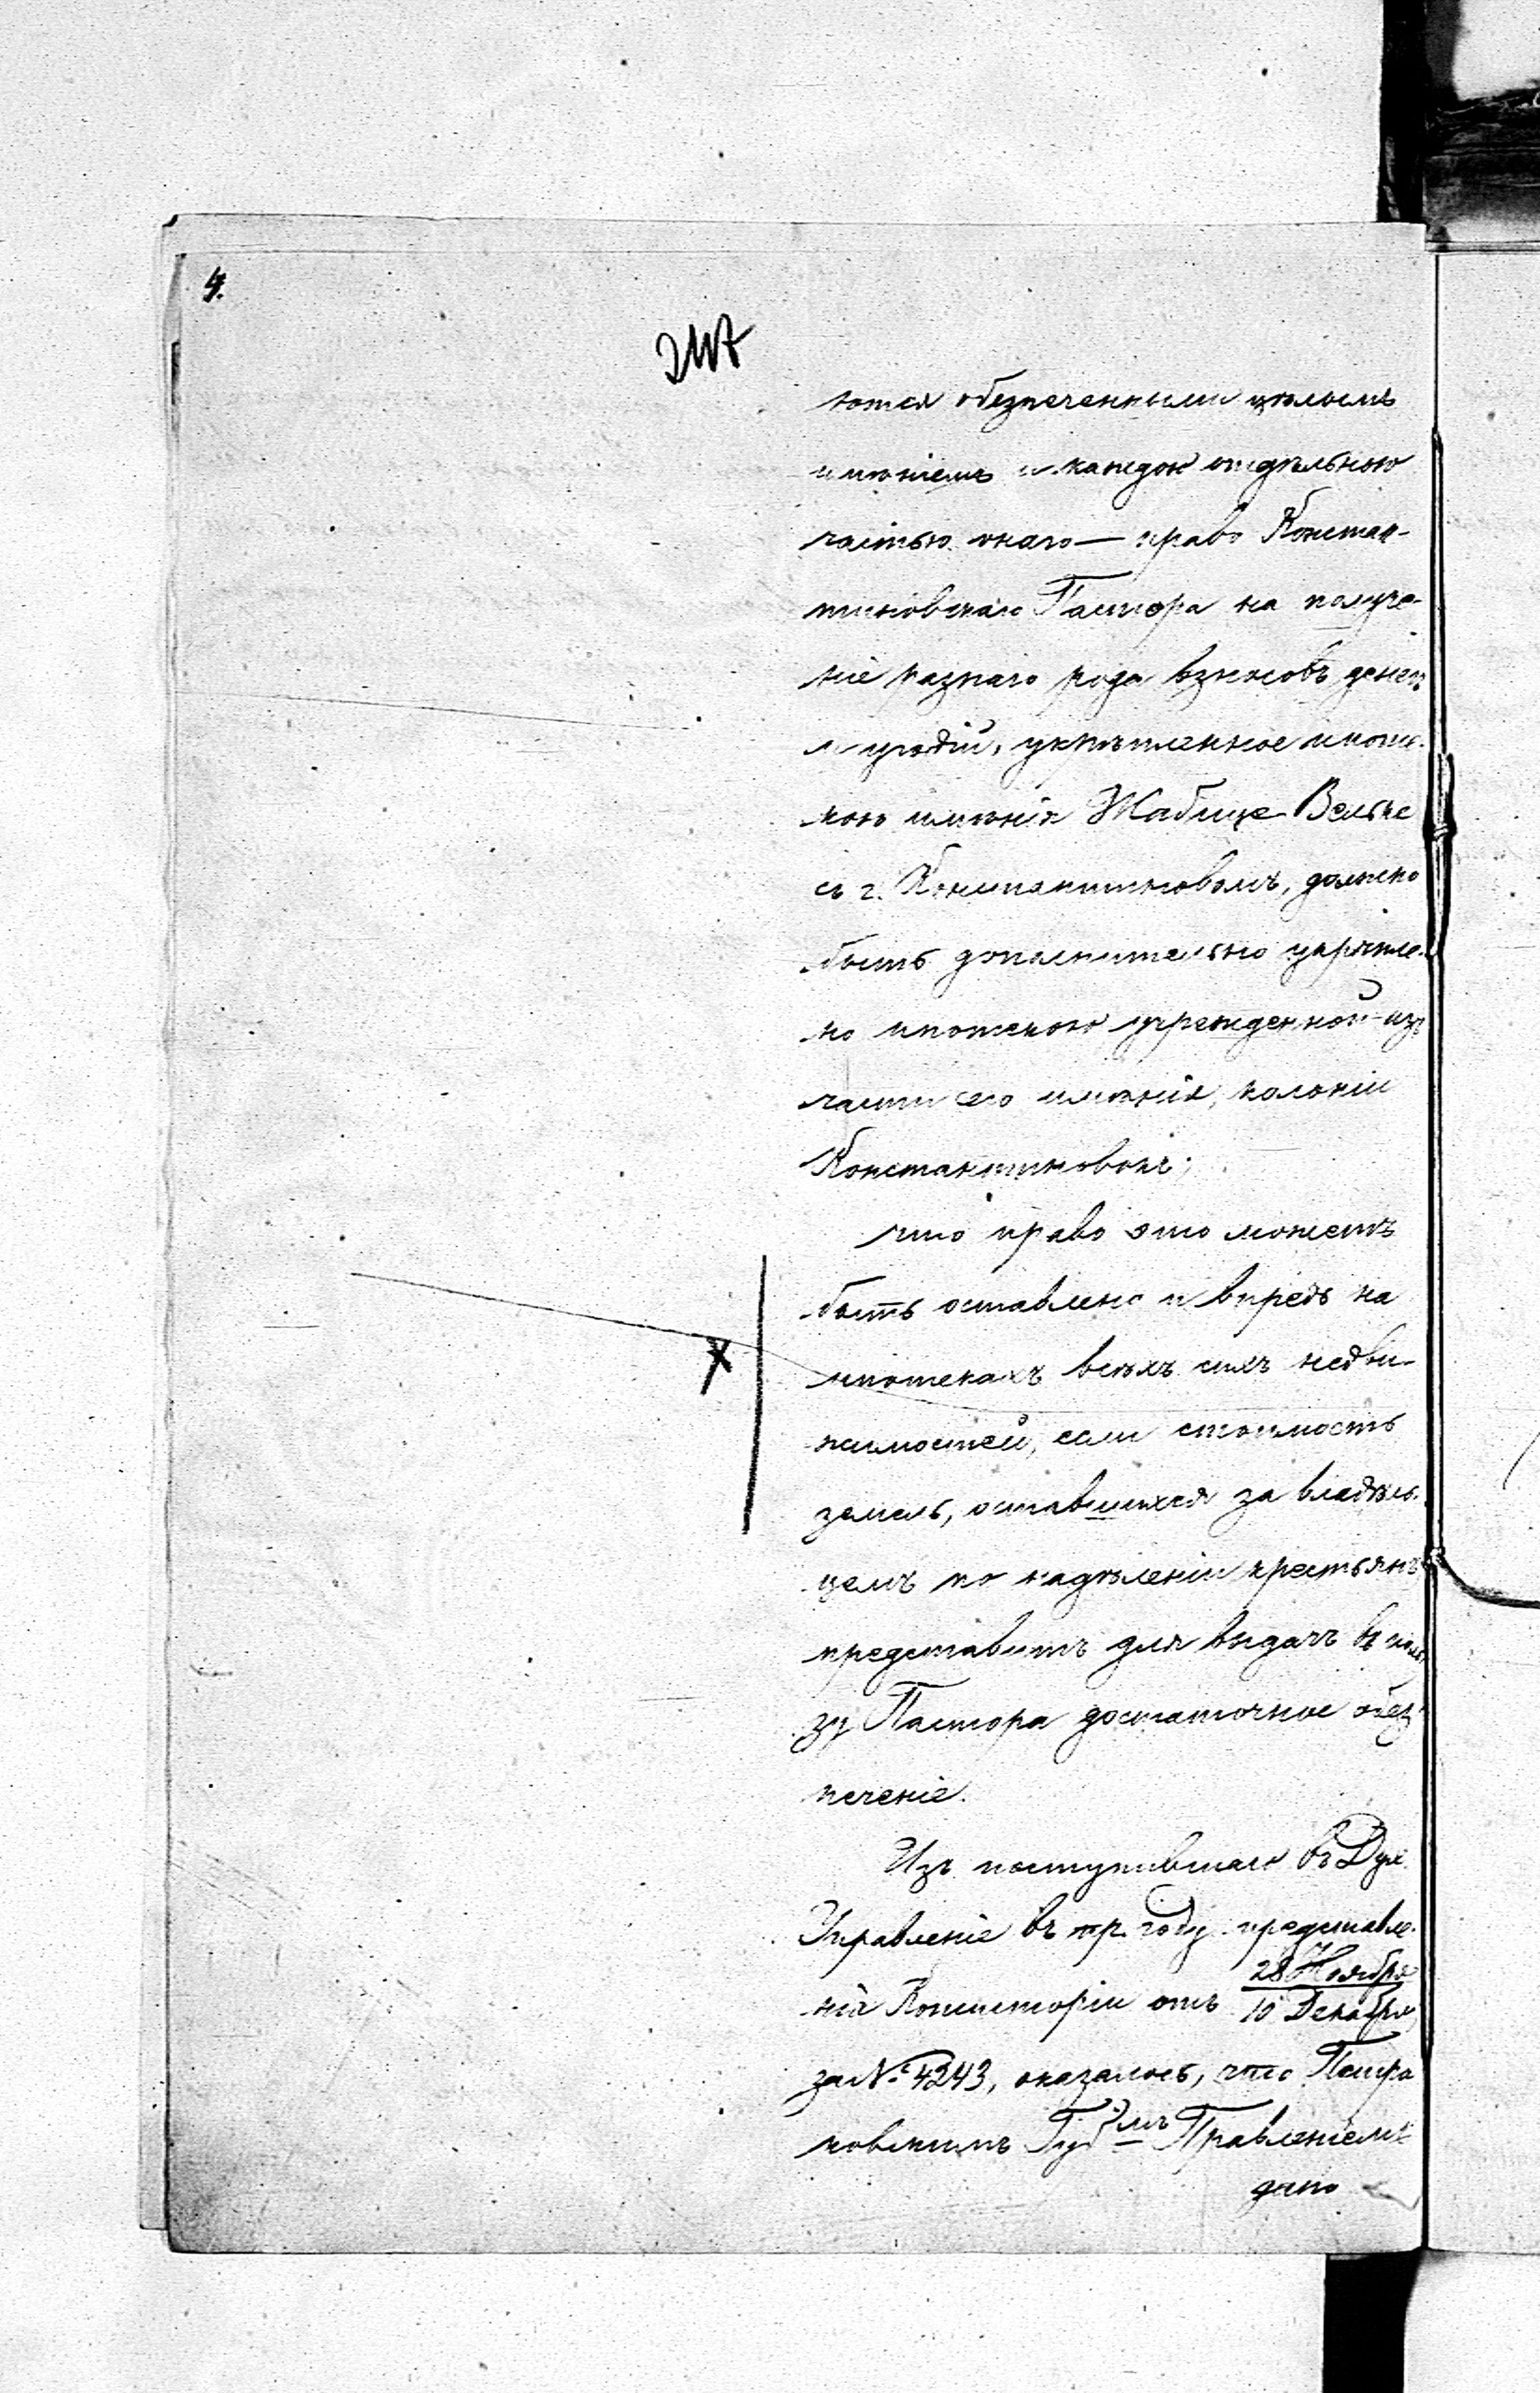 4.
ются обезпеченными цѣлымъ
имѣніемъ и каждою отдѣльною
частью онаго — право Констан-
тиновскаго Пастора на получе-
ніе разнаго рода взносовъ денегъ
и угодій, укрѣпленное ипоте-
кою имѣнія Жабице Вельке
съ г. Константиновомъ, должно
быть дополнительно укрѣпле-
но ипотекою учрежденной из
части его имѣнія, колоніи
Константиновокъ;
что право это можетъ
быть оставлено и впредь на
ипотекахъ всѣхъ сихъ недви-
жимостей, если стоимость
земель, оставшихся за владѣль-
цемъ по надѣленіи крестьянъ
представитъ для выдачъ въ поль-
зу Пастора достаточное обез-
печеніе.
Изъ поступившаго въ Дух.
Управленіе въ пр. году представле-
нія Консисторіи отъ 28 Ноября
10 Декабря
за № 4243, оказалось, что Петро
ковскимъ Губ-мъ Правленіемъ
дано